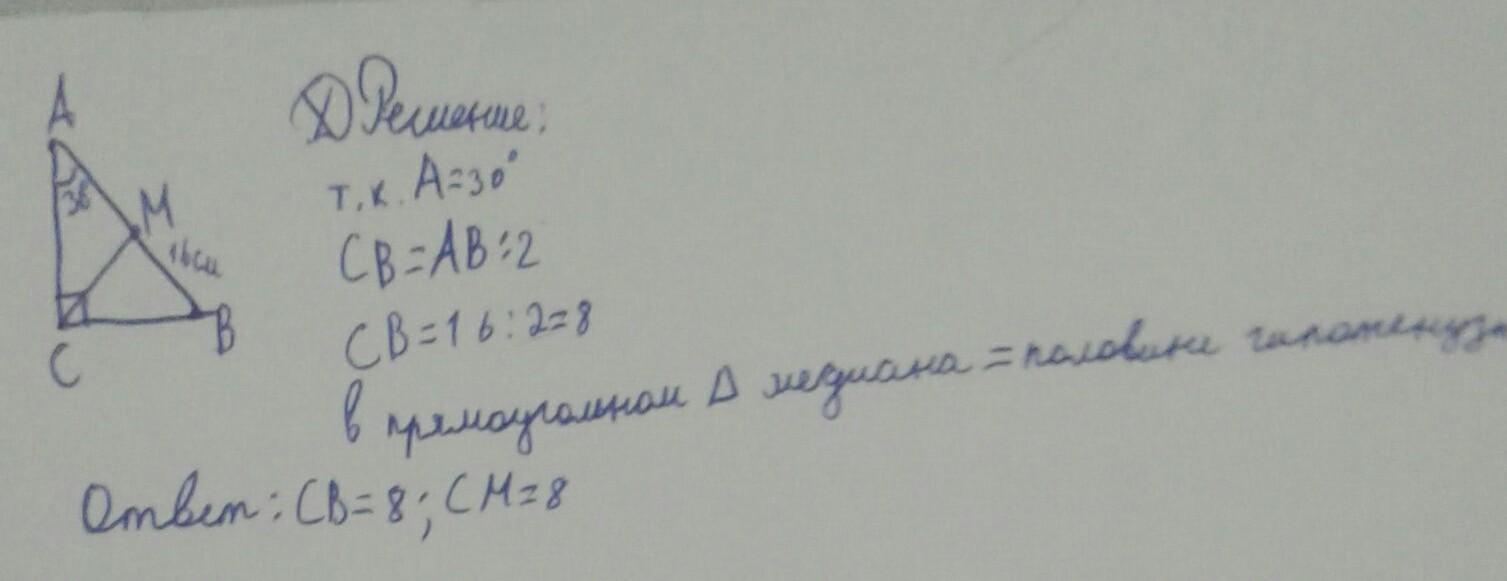 A
30
M
16см
C
B
Решение:
т.к. A=30°
CB=AB:2
CB=16:2=8
в прямоугольном Δ медиана = половине гипотенузы
Ответ: CB=8; CM=8